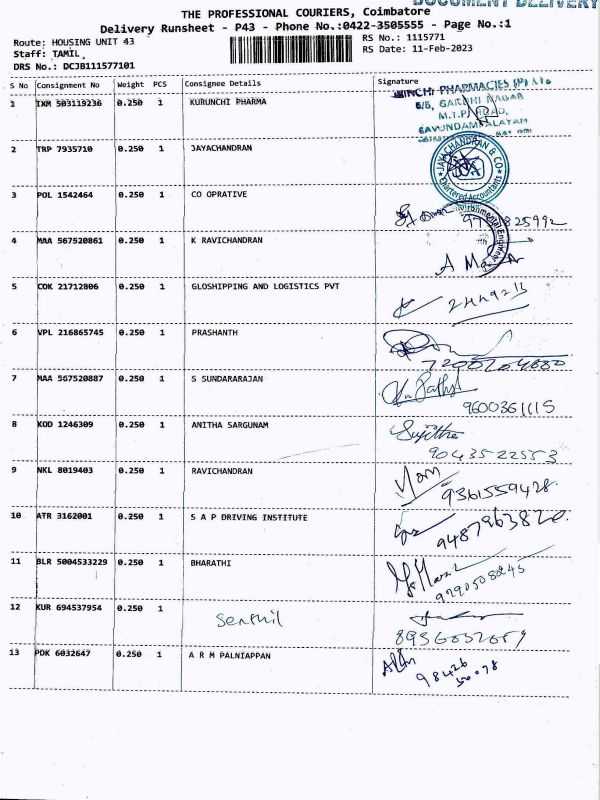 DOCUMENT DELIVERY
THE PROFESSIONAL COURIERS, Coimbatore
Delivery Runsheet - P43 - Phone No.:0422-3505555 - Page No.:1
Route: HOUSING UNIT 43 RS No.: 1115771
Staff: TAMIL RS Date: 11-Feb-2023
DRS No.: DCJB111577101
S No Consignment No Weight PCS Consignee Details Signature
1 IXM 503119236 0.250 1 KURUNCHI PHARMA
PHARMACIES (P) Ltd
6/6, GANDHI NAGAR
M.T.P. ROAD,
GAVUNDAMPALAYAM
2 TRP 7935710 0.250 1 JAYACHANDRAN
JAYACHANDRAN & CO
Chartered Accountants
3 POL 1542464 0.250 1 CO OPRATIVE
4 MAA 567520861 0.250 1 K RAVICHANDRAN
Environmental Engineer
5 COK 21712806 0.250 1 GLOSHIPPING AND LOGISTICS PVT
6 VPL 216865745 0.250 1 PRASHANTH
7 MAA 567520887 0.250 1 S SUNDARARAJAN
9600361115
8 KOD 1246309 0.250 1 ANITHA SARGUNAM
Sujitha
9043522553
9 NKL 8019403 0.250 1 RAVICHANDRAN
9361559428
10 ATR 3162001 0.250 1 S A P DRIVING INSTITUTE
9487963820
11 BLR 5004533229 0.250 1 BHARATHI
9790508845
12 KUR 694537954 0.250 1 Senthil
13 PDK 6032647 0.250 1 A R M PALNIAPPAN
98426
50078